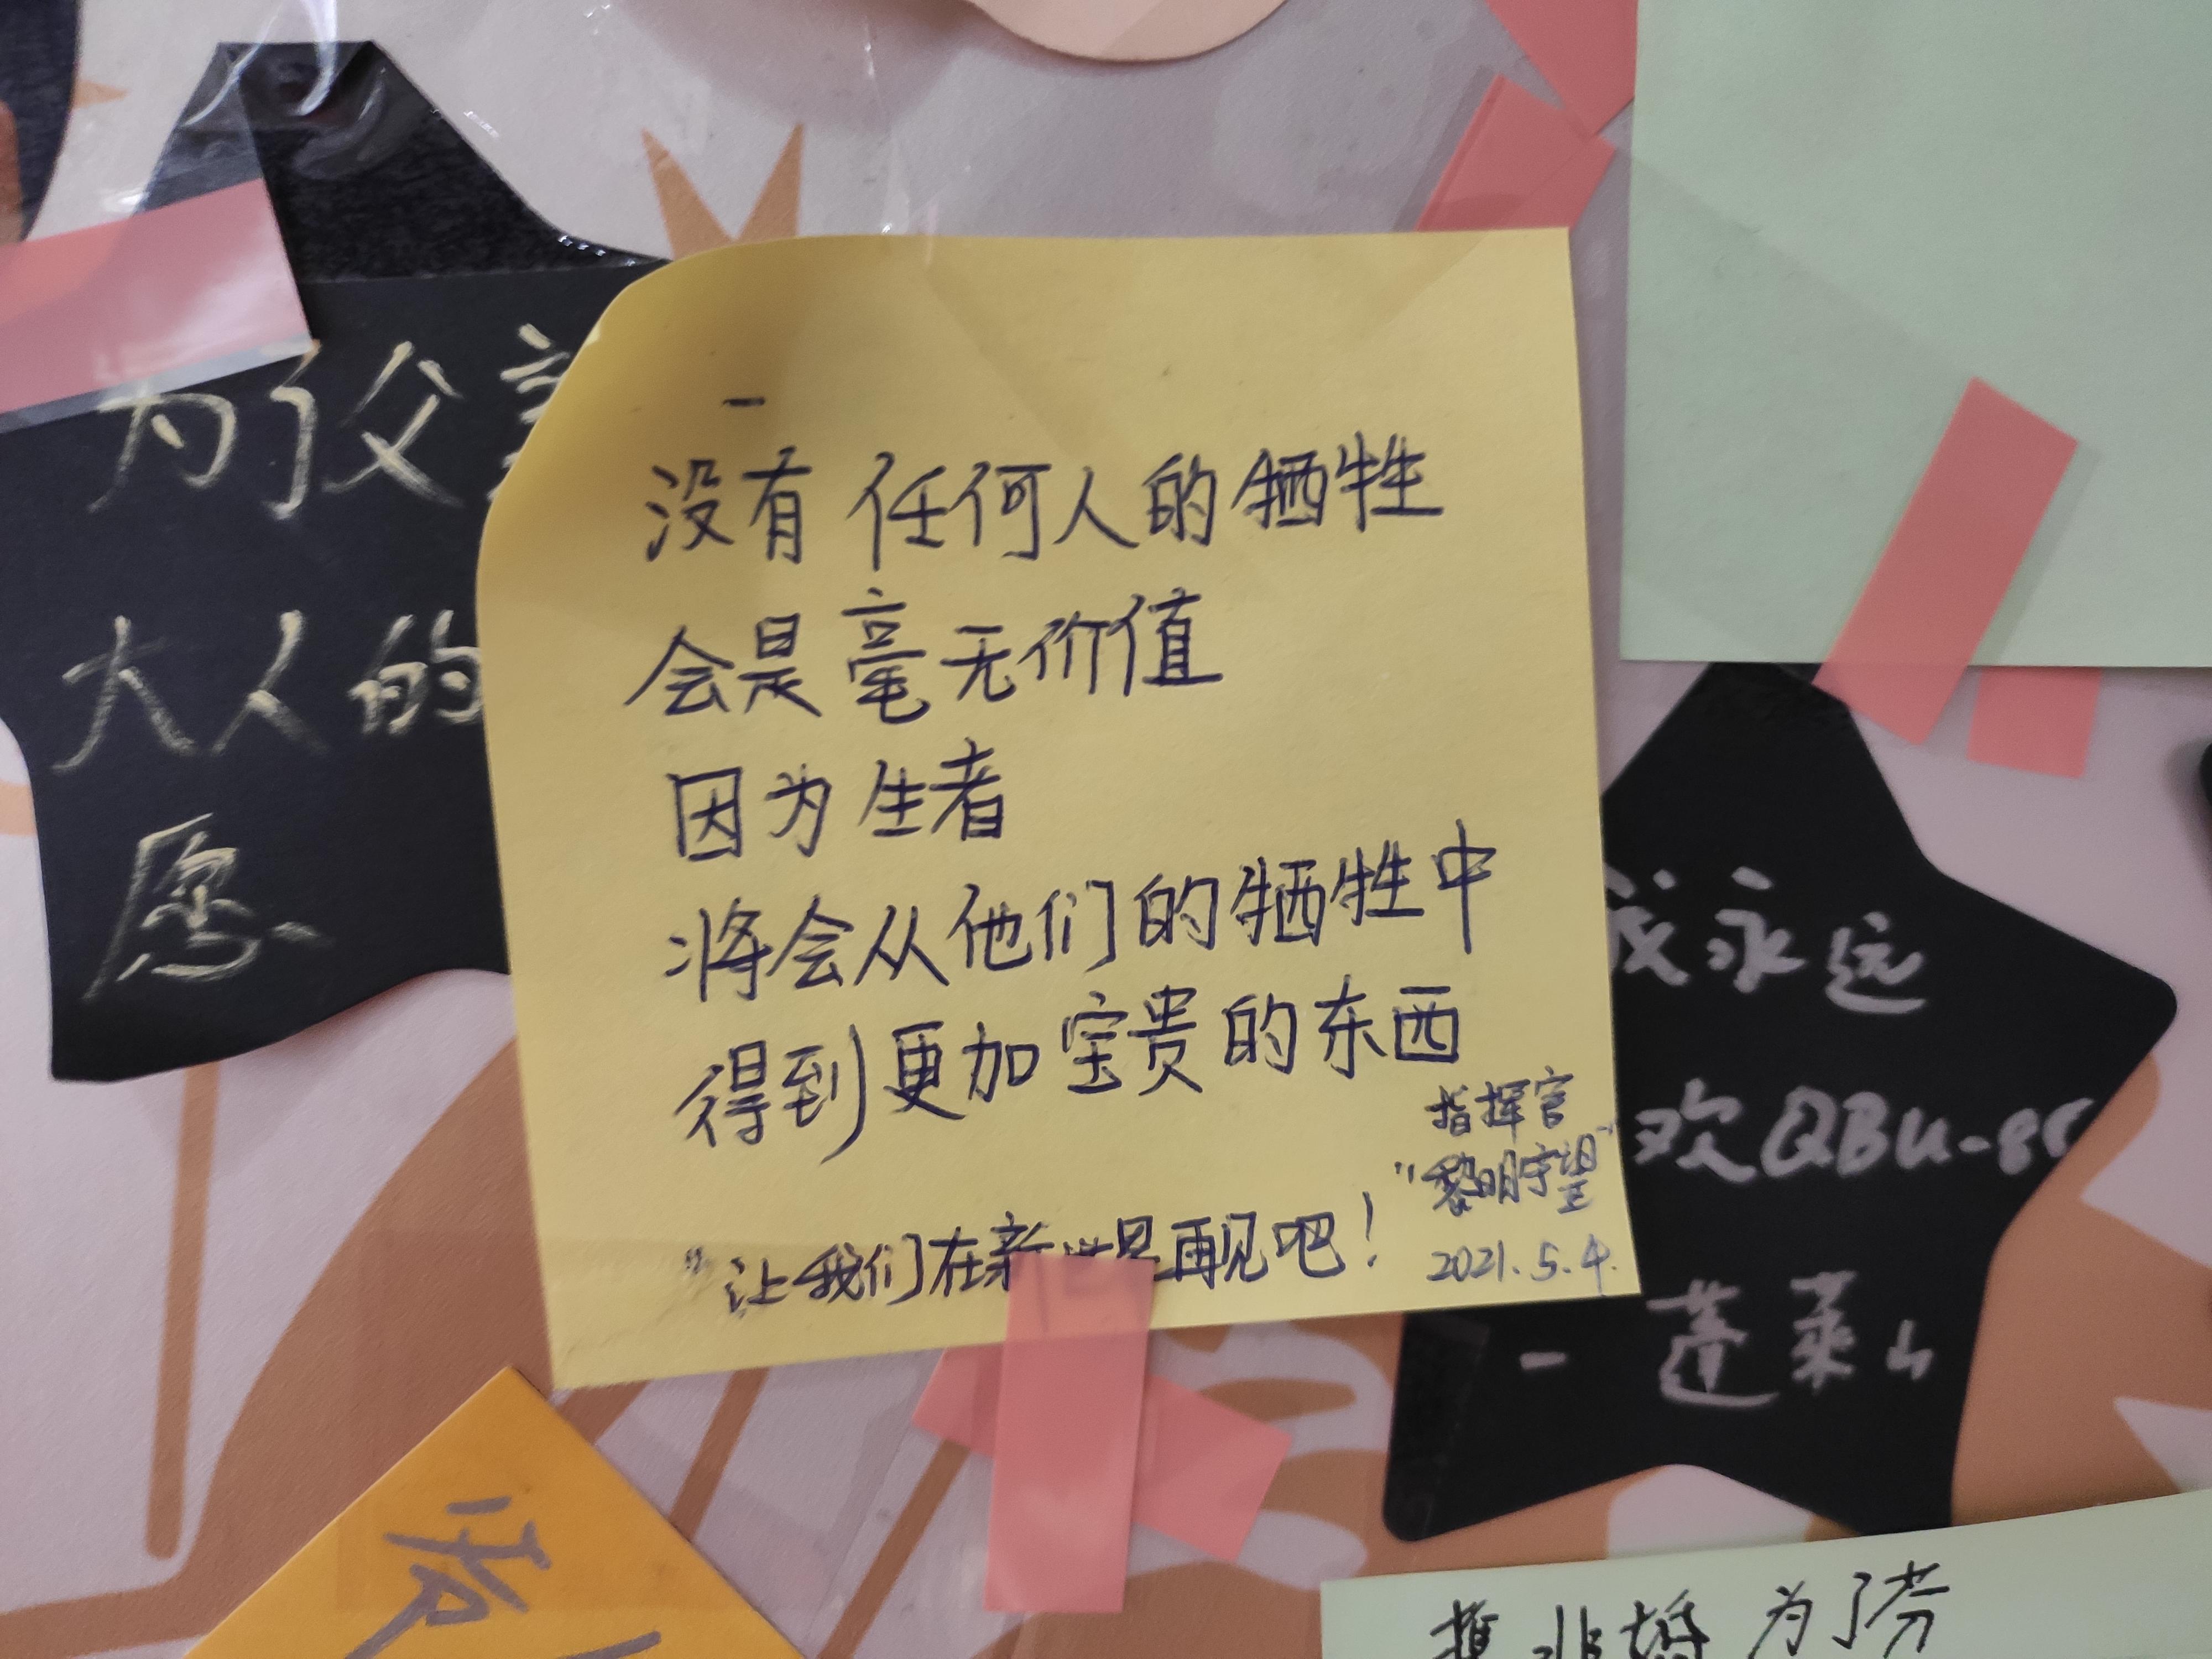 为了父
大人的
愿
没有任何人的牺牲
会是毫无价值
因为生者
将会从他们的牺牲中
得到更加宝贵的东西
指挥官
"黎明守望"
"让我们在新世界再见吧！
2021.5.4.
我永远
欢QBU-
-蓬莱山
为了芬